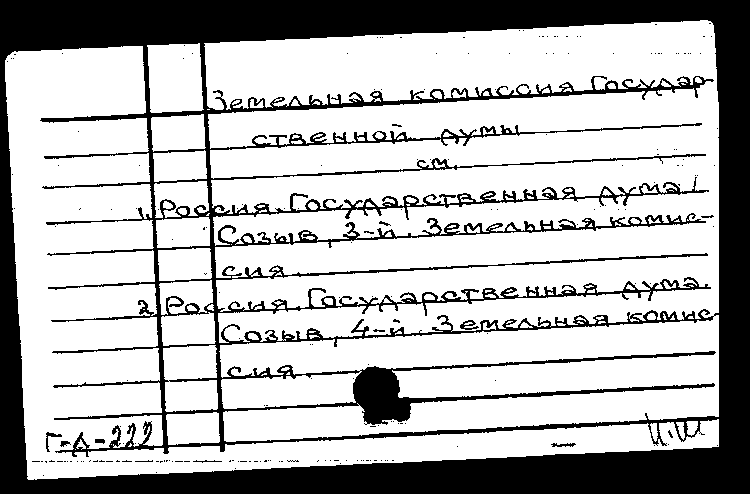 Земельная комиссия Государ-
ственной думы
см.
1. Россия. Государственная дума.
Созыв, 3-й. Земельная комис-
сия.
2. Россия. Государственная дума.
Созыв, 4-й. Земельная комис-
сия.
Г-А-222